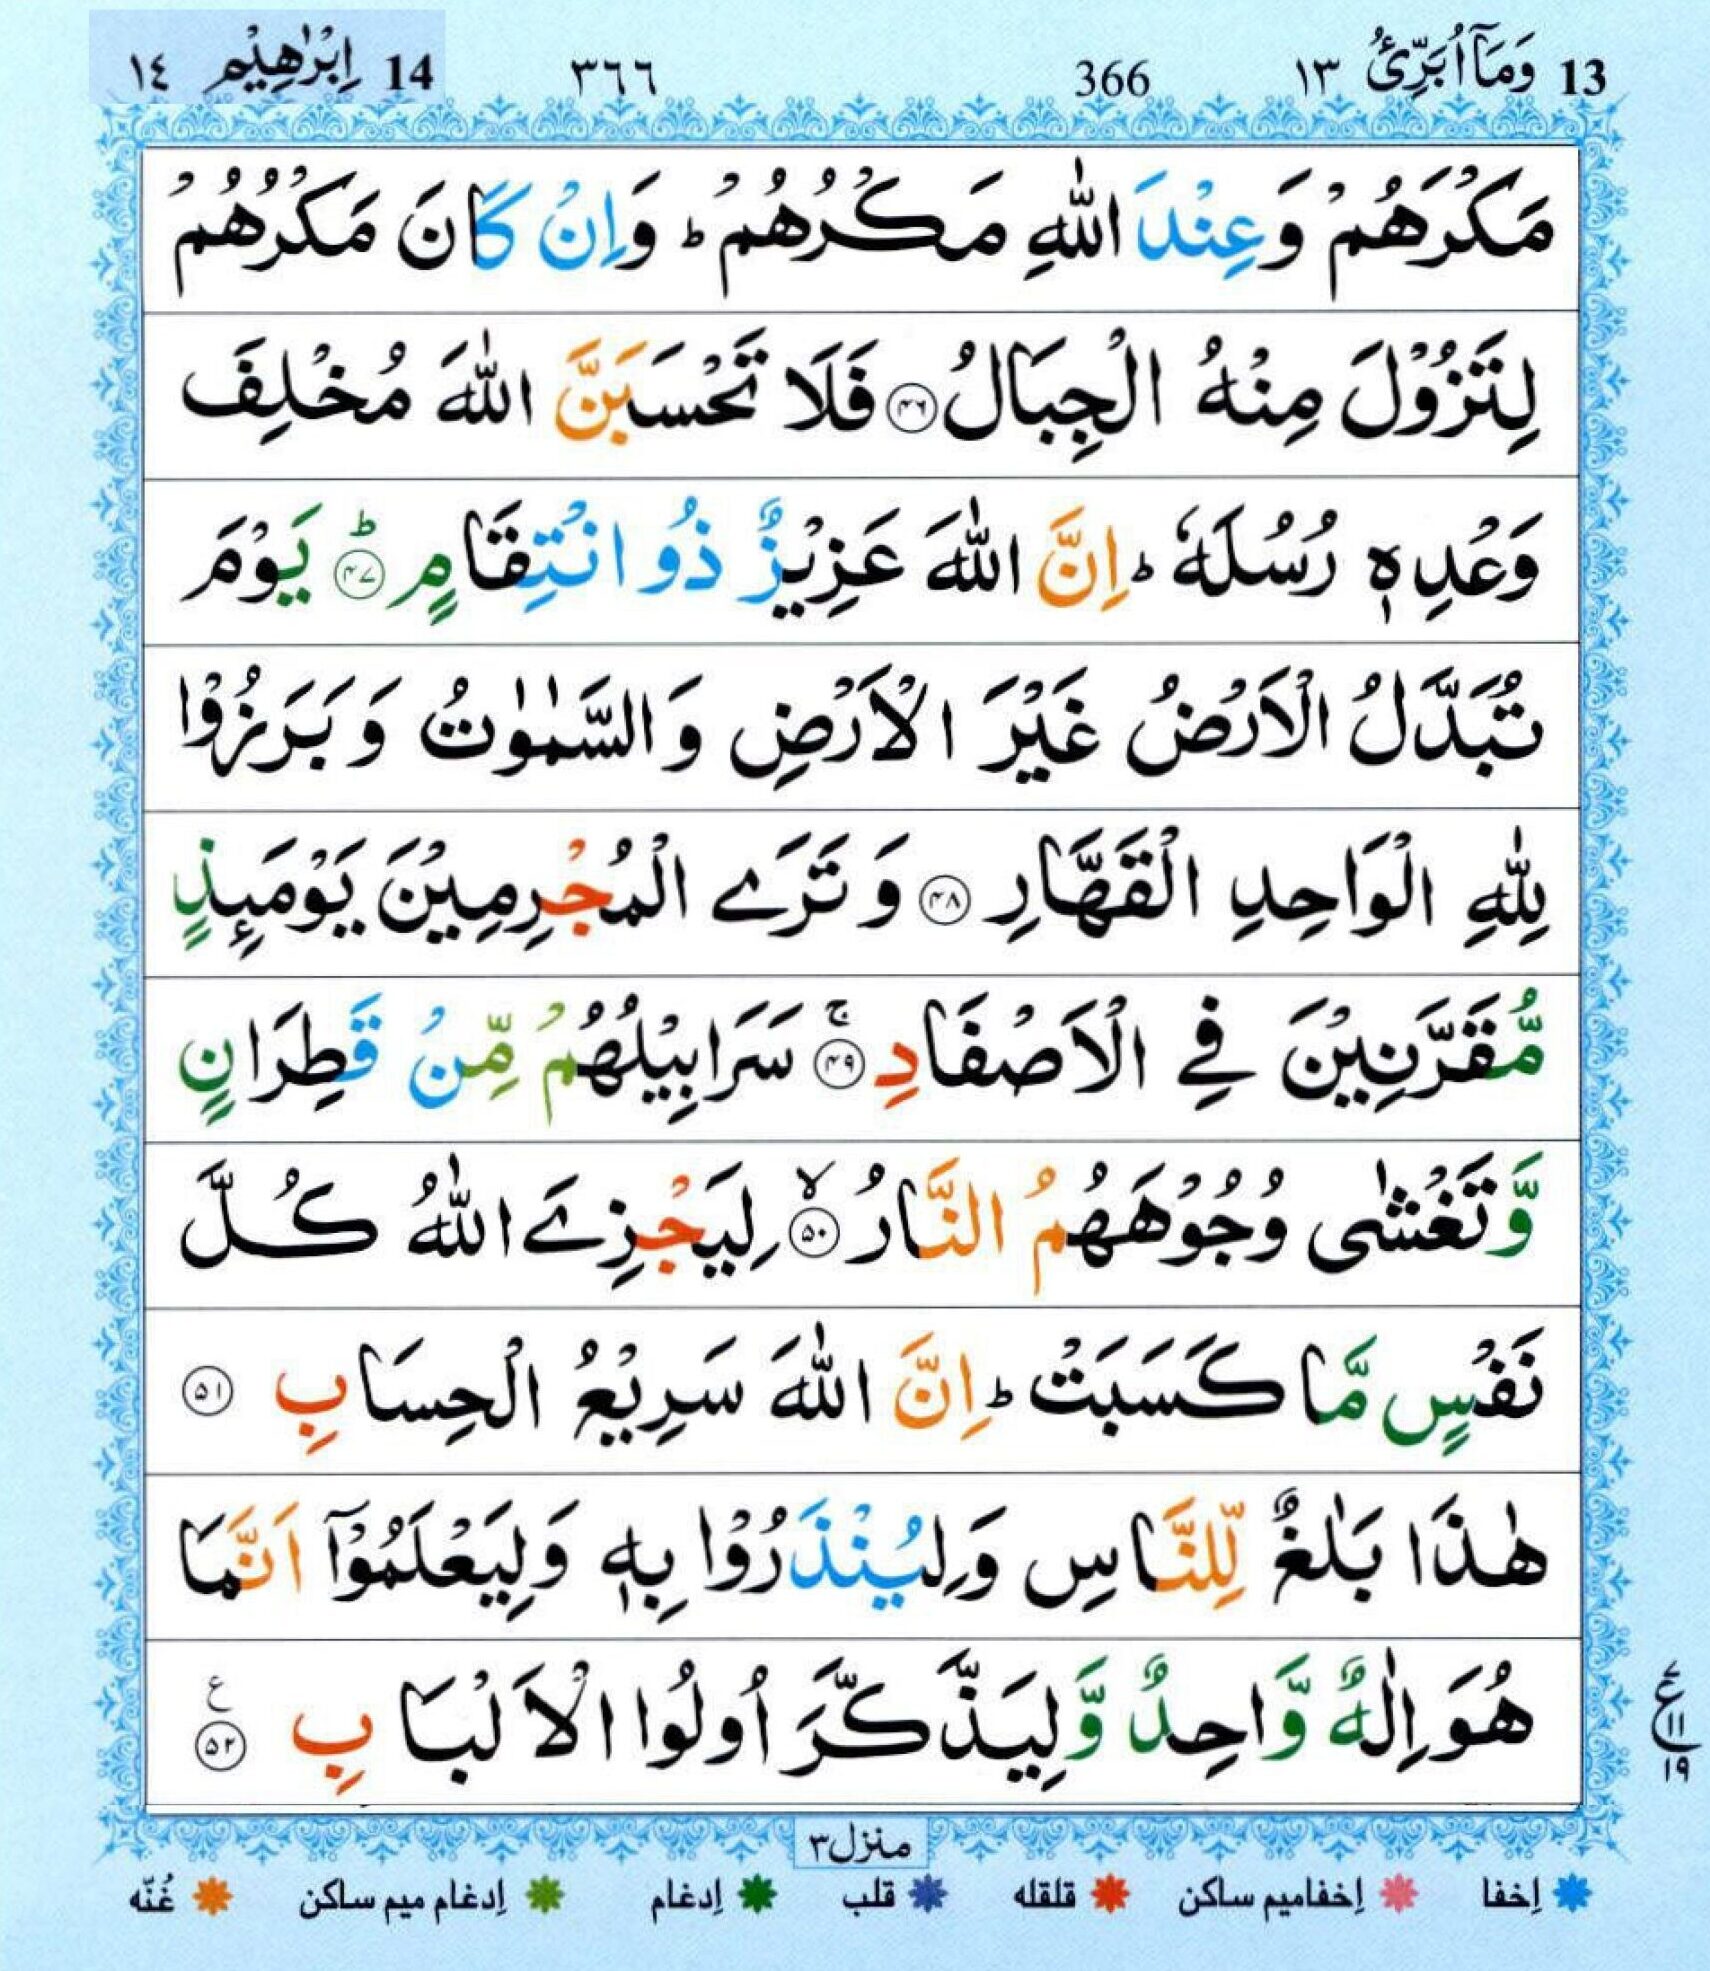 13 وَمَآ اُبَرِّئُ ١٣ 366 ٣٦٦ 14 اِبْرٰهِيْم ١٤
مَكْرَهُمْ وَعِنْدَ اللّٰهِ مَكْرُهُمْ ؕ وَاِنْ كَانَ مَكْرُهُمْ
لِتَزُوْلَ مِنْهُ الْجِبَالُ ﴿۴۶﴾ فَلَا تَحْسَبَنَّ اللّٰهَ مُخْلِفَ
وَعْدِهٖ رُسُلَهٗ ؕ اِنَّ اللّٰهَ عَزِيْزٌ ذُو انْتِقَامٍ ؕ﴿۴۷﴾ يَوْمَ
تُبَدَّلُ الْاَرْضُ غَيْرَ الْاَرْضِ وَالسَّمٰوٰتُ وَبَرَزُوْا
لِلّٰهِ الْوَاحِدِ الْقَهَّارِ ﴿۴۸﴾ وَتَرَے الْمُجْرِمِيْنَ يَوْمَىِٕذٍ
مُّقَرَّنِيْنَ فِے الْاَصْفَادِ ۚ﴿۴۹﴾ سَرَابِيْلُهُمْ مِّنْ قَطِرَانٍ
وَّتَغْشٰى وُجُوْهَهُمُ النَّارُ ۙ﴿۵۰﴾ لِيَجْزِےَ اللّٰهُ كُلَّ
نَفْسٍ مَّا كَسَبَتْ ؕ اِنَّ اللّٰهَ سَرِيْعُ الْحِسَابِ ﴿۵۱﴾
هٰذَا بَلٰغٌ لِّلنَّاسِ وَلِيُنْذَرُوْا بِهٖ وَلِيَعْلَمُوْٓا اَنَّمَا
هُوَ اِلٰهٌ وَّاحِدٌ وَّلِيَذَّكَّرَ اُولُوا الْاَلْبَابِ ﴿۵۲﴾ ع
ع ١١ ١٩
منزل ٣
إخفا إخفا ميم ساكن قلقله قلب إدغام إدغام ميم ساكن غُنّه